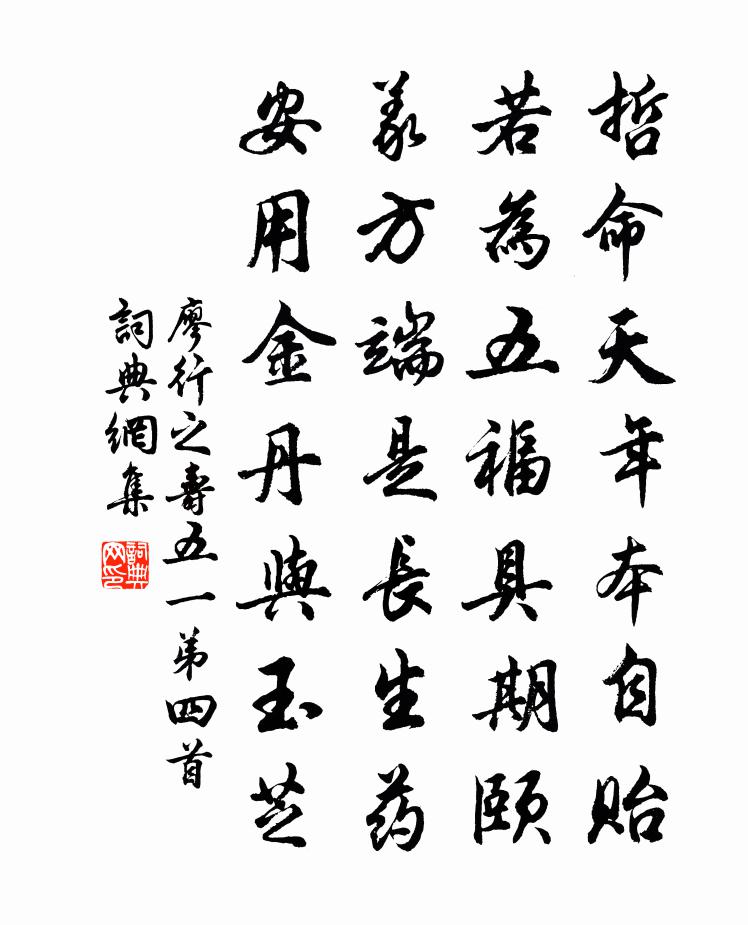 哲命天年本自貽
若為五福具期頤
義方端是長生药
安用金丹與玉芝
廖行之壽五一第四首
詞典網集
詞典網印